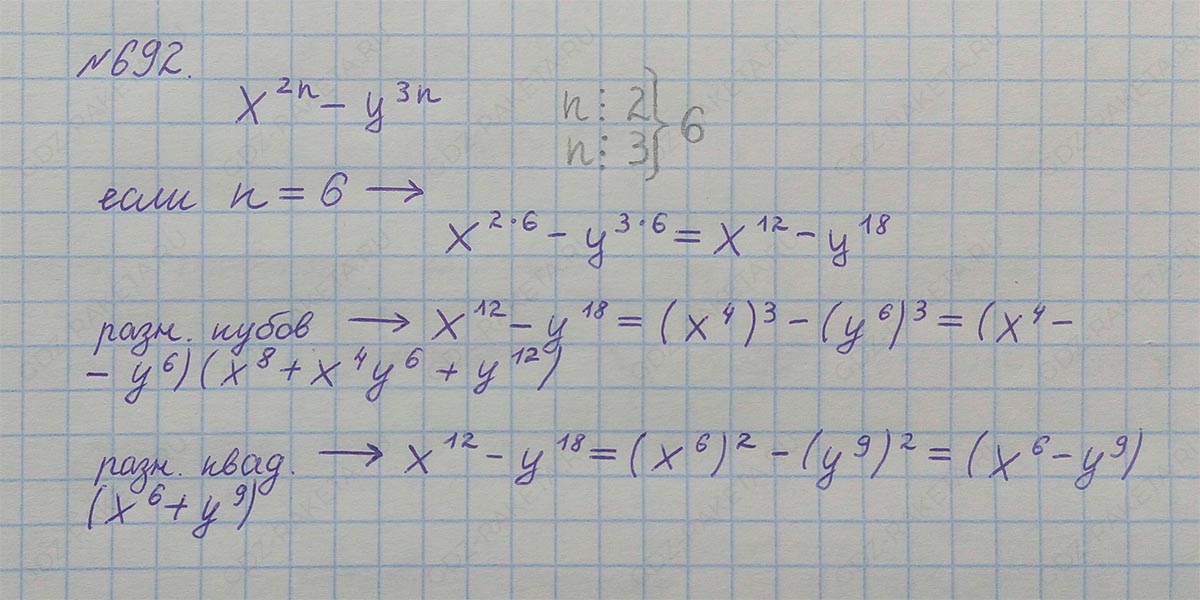 №692.
x²ⁿ - y³ⁿ
n ⋮ 2 } 6
n ⋮ 3
если n = 6 →
x^{2·6} - y^{3·6} = x^{12} - y^{18}
разн. кубов → x^{12} - y^{18} = (x^4)^3 - (y^6)^3 = (x^4 -
- y^6)(x^8 + x^4y^6 + y^{12})
разн. квад. → x^{12} - y^{18} = (x^6)^2 - (y^9)^2 = (x^6 - y^9)
(x^6 + y^9)